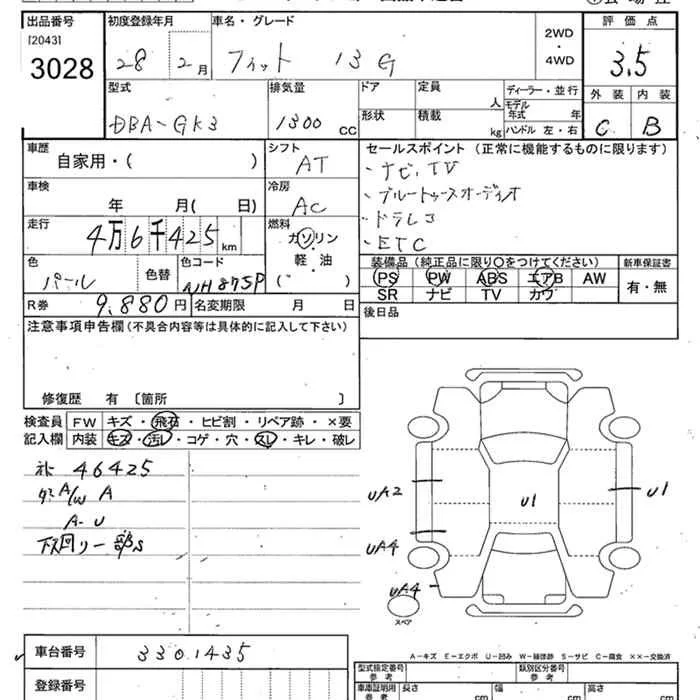 出品番号 初度登録年月 車名・グレード 評価点
[2043]
3028 28 2月 フィット 13G 2WD・4WD 3.5
型式 排気量 ドア 定員 人 ディーラー・並行 外装 内装
DBA-GK3 1300 CC 形状 積載 kg モデル年式 年 ハンドル 左・右 C B
車歴 シフト セールスポイント(正常に機能するものに限ります)
自家用・( ) AT ・ナビ、TV
車検 冷房 ・ブルートゥースオーディオ
年 月( 日) AC ・ドラレコ
走行 燃料 ・ETC
4万6千425km ガソリン・軽・油 ( )
色 色替 色コード 装備品(純正品に限り○をつけてください) 新車保証書
パール NH875P PS PW ABS エアB AW 有・無
SR ナビ TV カワ
R券 9,880円 名変期限 月 日 後日品
注意事項申告欄(不具合内容等は具体的に記入して下さい)
修復歴 有 〔箇所 〕
検査員 FW キズ・飛石・ヒビ割・リペア跡・×要
記入欄 内装 キズ・汚レ・コゲ・穴・スレ・キレ・破レ
46425
A/W A
A-U
下回り一部S
UA2 U1 U1
UA4
UA4
スペア
A-キズ E-エクボ U-凹み W-補修跡 S-サビ C-腐食 ××-交換済
車台番号 3301435
型式指定番号 参考 類別区分番号 参考
登録番号 車庫証明用 参考 長さ cm 幅 cm 高さ cm